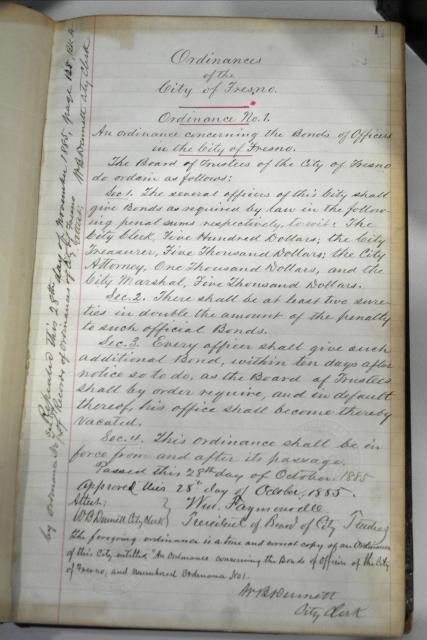 1
Ordinances
of the
City of Fresno.
Ordinance No. 1.
An ordinance concerning the Bonds of Officers
in the City of Fresno.
The Board of Trustees of the City of Fresno
do ordain as follows:
Sec. 1. The several officers of this City shall
give Bonds as required by law in the follow-
ing penal sums respectively, to wit: The
City Clerk, Five Hundred Dollars; the City
Treasurer, Five Thousand Dollars; the City
Attorney, One Thousand Dollars, and the
City Marshal, Five Thousand Dollars.
Sec. 2. There shall be at least two sure-
ties in double the amount of the penalty
to such official Bonds.
Sec. 3. Every officer shall give such
additional Bond, within ten days after
notice so to do, as the Board of Trustees
shall by order require, and in default
thereof, his office shall become thereby
vacated.
Sec. 4. This ordinance shall be in
force from and after its passage.
Passed this 28th day of October 1885
Approved this 28th day of October, 1885.
Attest: Wm. Faymonville
W.B. Dennett City Clerk } President of Board of City Trustees
The foregoing ordinance is a true and correct copy of an Ordinance
of this City entitled, "An Ordinance concerning the Bonds of Officers of the City
of Fresno, and numbered Ordinance No 1.
W.B. Dennett
City Clerk
Repealed this 28th day of November 1885, page 125, Rec A
by ordinance of Records of Ordinances of City of Fresno
Attest: W.B. Dennett City Clerk